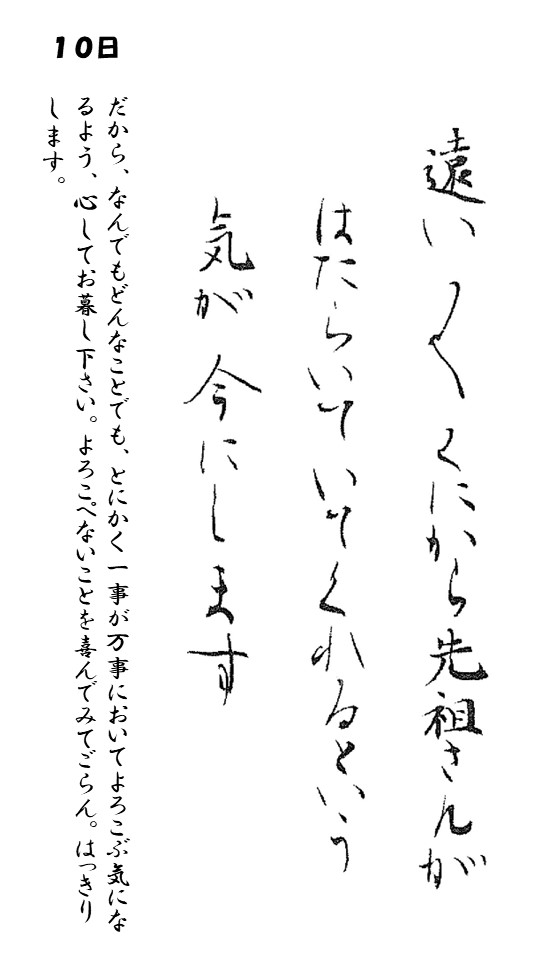 10日
遠い〱くにから先祖さんが
はたらいていてくれるという
気が今にします
だから、なんでもどんなことでも、とにかく一事が万事においてよろこぶ気にな
るよう、心してお暮し下さい。よろこぺないことを喜んでみてごらん。はっきり
します。